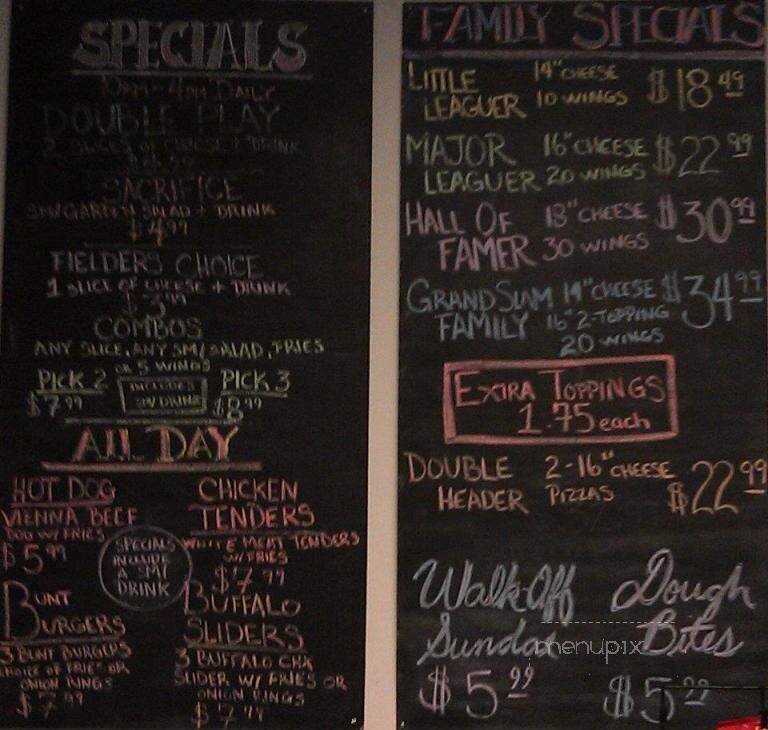 SPECIALS
10AM-4PM DAILY
DOUBLE PLAY
2 SLICES OF CHEESE + DRINK
SACRIFICE
SM GARDEN SALAD + DRINK
$4.99
FIELDERS CHOICE
1 SLICE OF CHEESE + DRINK
$3.99
COMBOS
ANY SLICE, ANY SM SALAD, FRIES
OR 5 WINGS
PICK 2
$7.99
INCLUDES
SM DRINK
PICK 3
$8.99
ALL DAY
HOT DOG
VIENNA BEEF
DOG W/ FRIES
$5.99
CHICKEN
TENDERS
WHITE MEAT TENDERS
W/ FRIES
$7.99
SPECIALS
INCLUDE
A SM
DRINK
BUNT
BURGERS
3 BUNT BURGERS
CHOICE OF FRIES OR
ONION RINGS
$7.99
BUFFALO
SLIDERS
3 BUFFALO CHX
SLIDER W/ FRIES OR
ONION RINGS
$7.99
FAMILY SPECIALS
LITTLE 14" CHEESE $18.49
LEAGUER 10 WINGS
MAJOR 16" CHEESE $22.99
LEAGUER 20 WINGS
HALL OF 18" CHEESE $30.99
FAMER 30 WINGS
GRAND SLAM 14" CHEESE $34.99
FAMILY 16" 2-TOPPING
20 WINGS
EXTRA TOPPINGS
1.75 each
DOUBLE 2-16" CHEESE $22.99
HEADER PIZZAS
Walk Off
Sundae
$5.99
Dough
Bites
$5.99
menupix